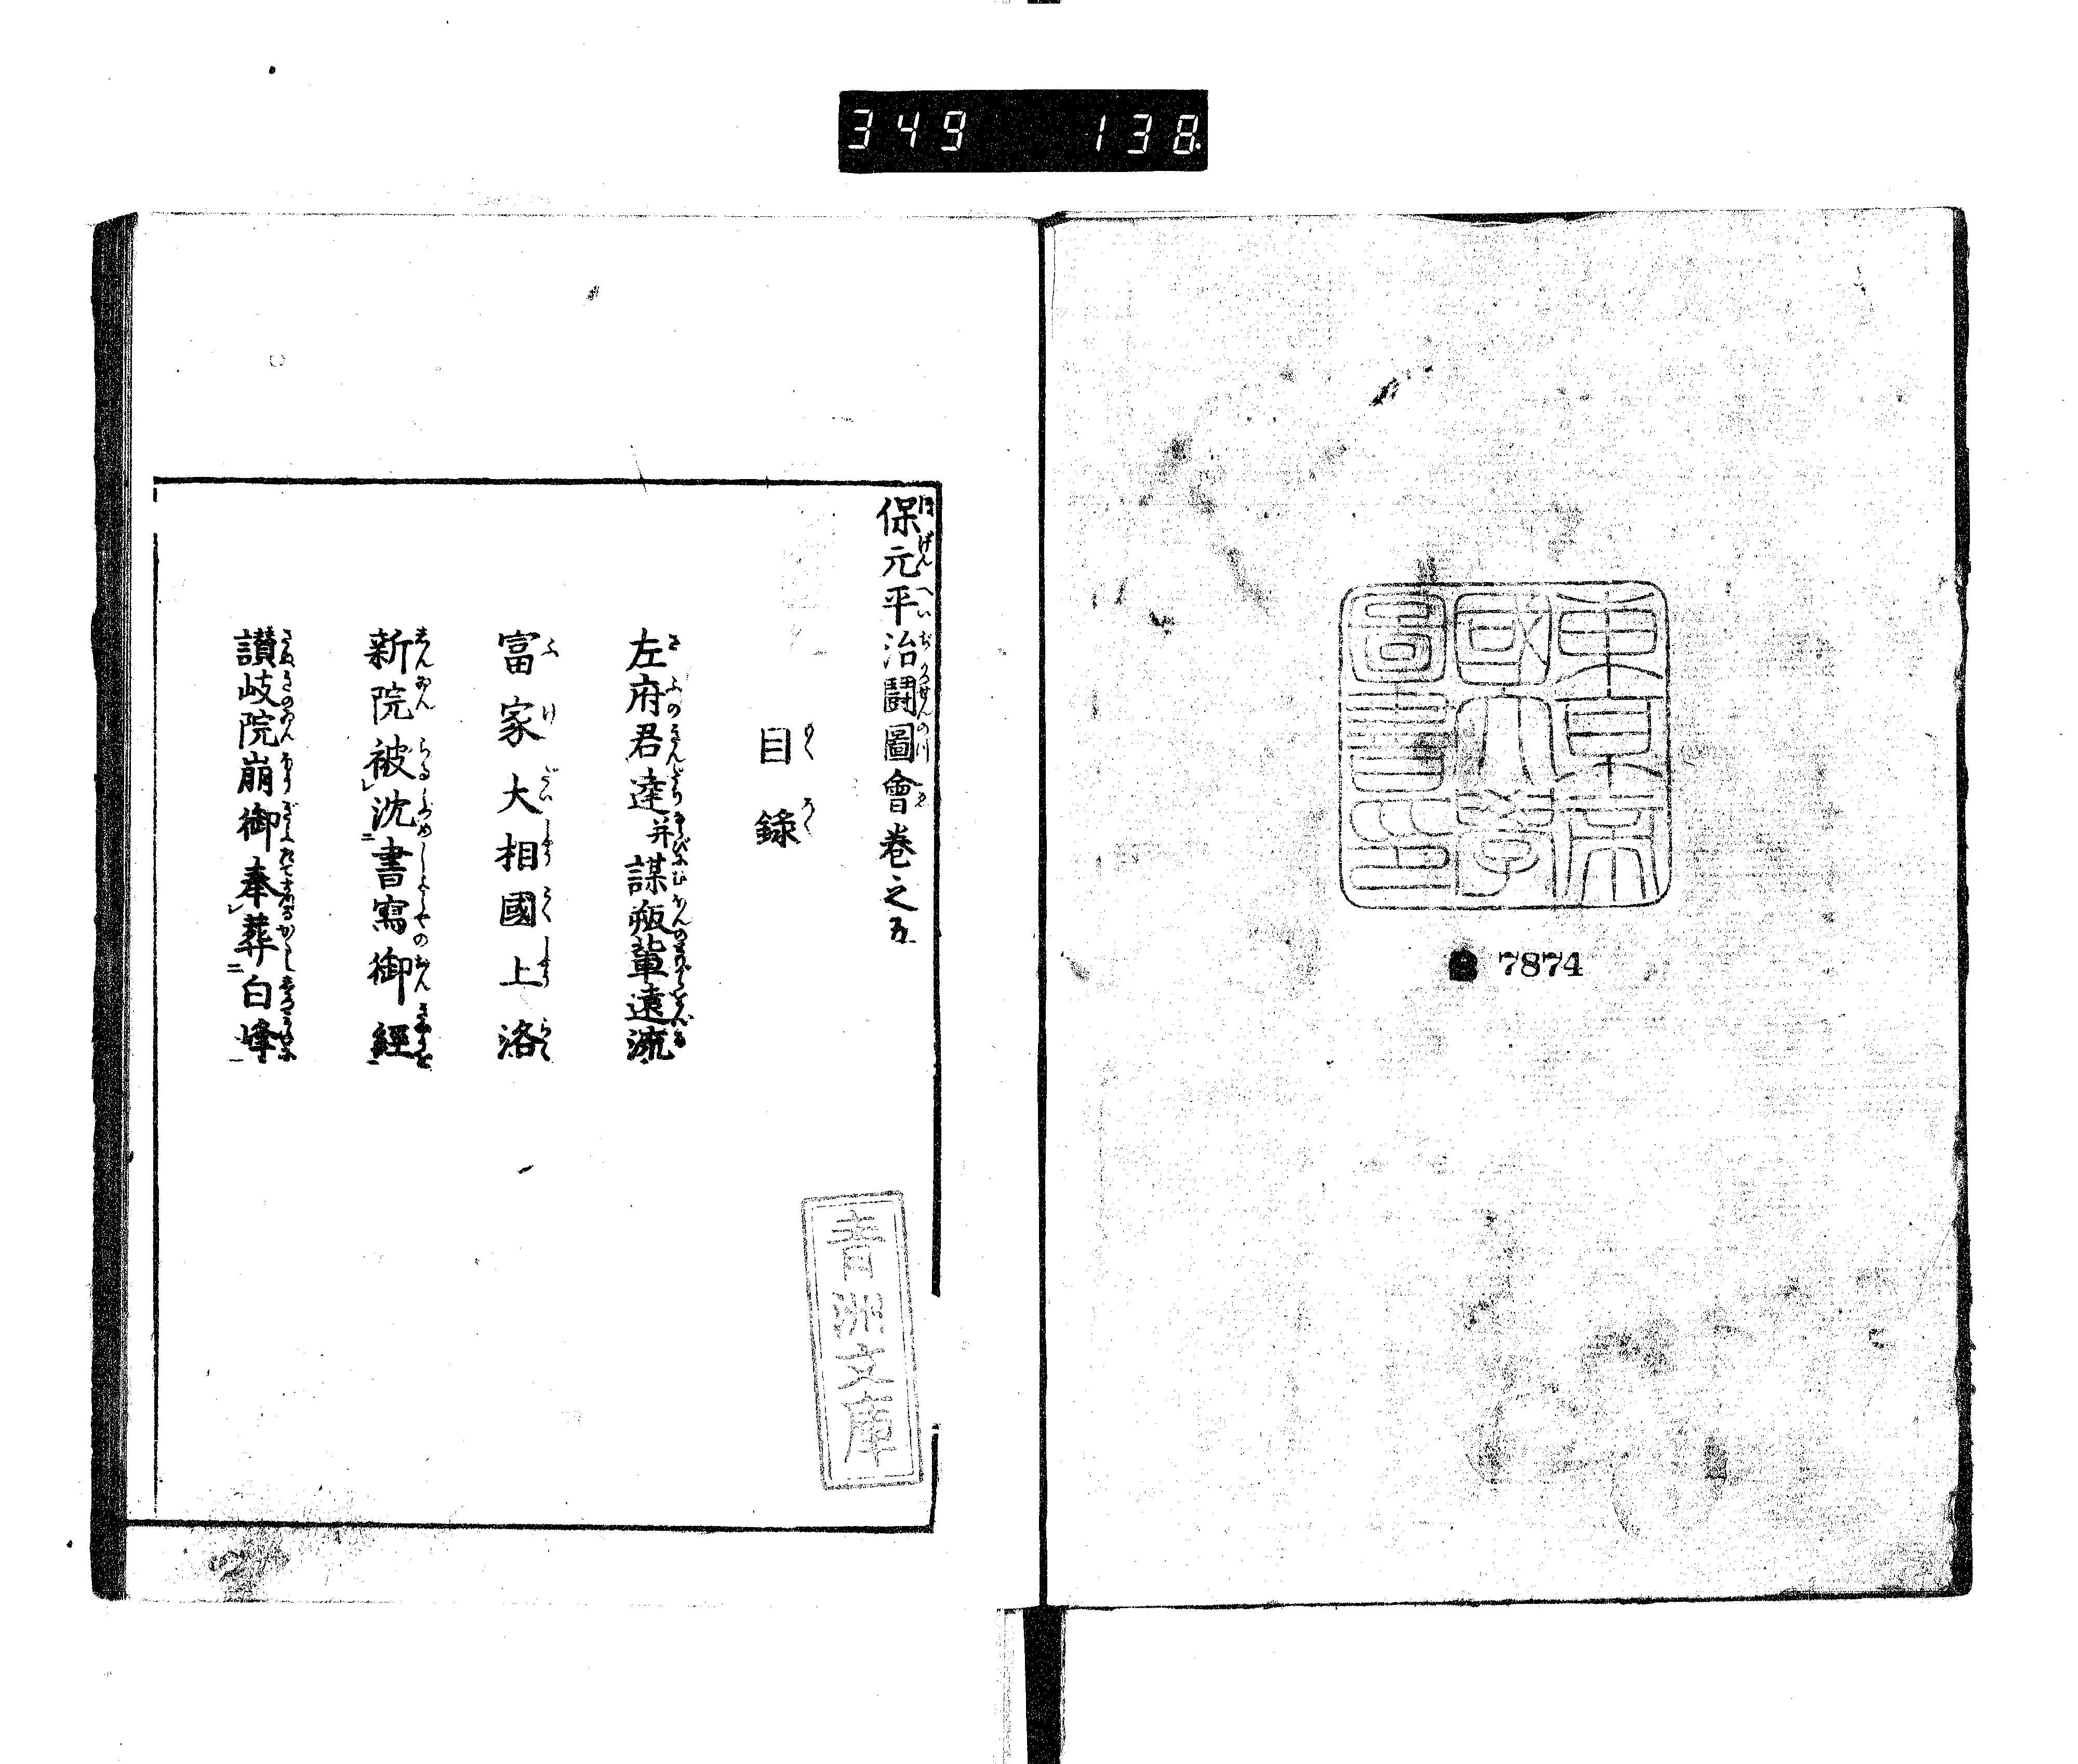 349 138
東京帝
國大學
圖書印
7874
保元平治闘圖會巻之五
目録
左府君達并謀叛輩遠流
富家大相國上洛
新院被レ沈二書寫御經一
讃岐院崩御奉レ葬二白峰一
青洲文庫